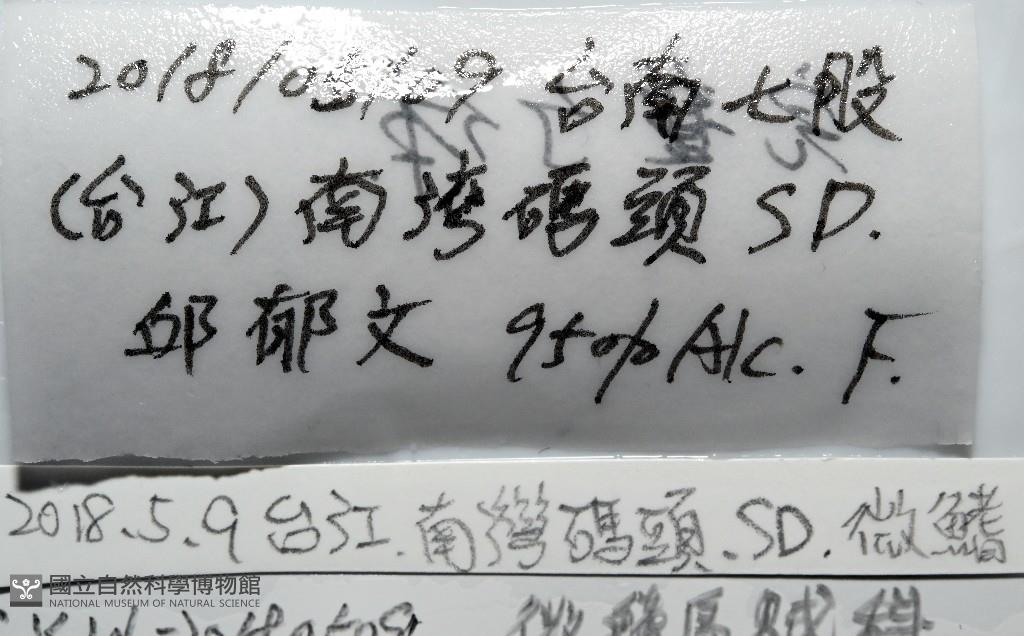 2018/05/09 台南七股
(台江)南湾碼頭 SD.
邱郁文 95% Alc. F.
2018.5.9 台江.南灣碼頭.SD.微鰭
國立自然科學博物館
NATIONAL MUSEUM OF NATURAL SCIENCE